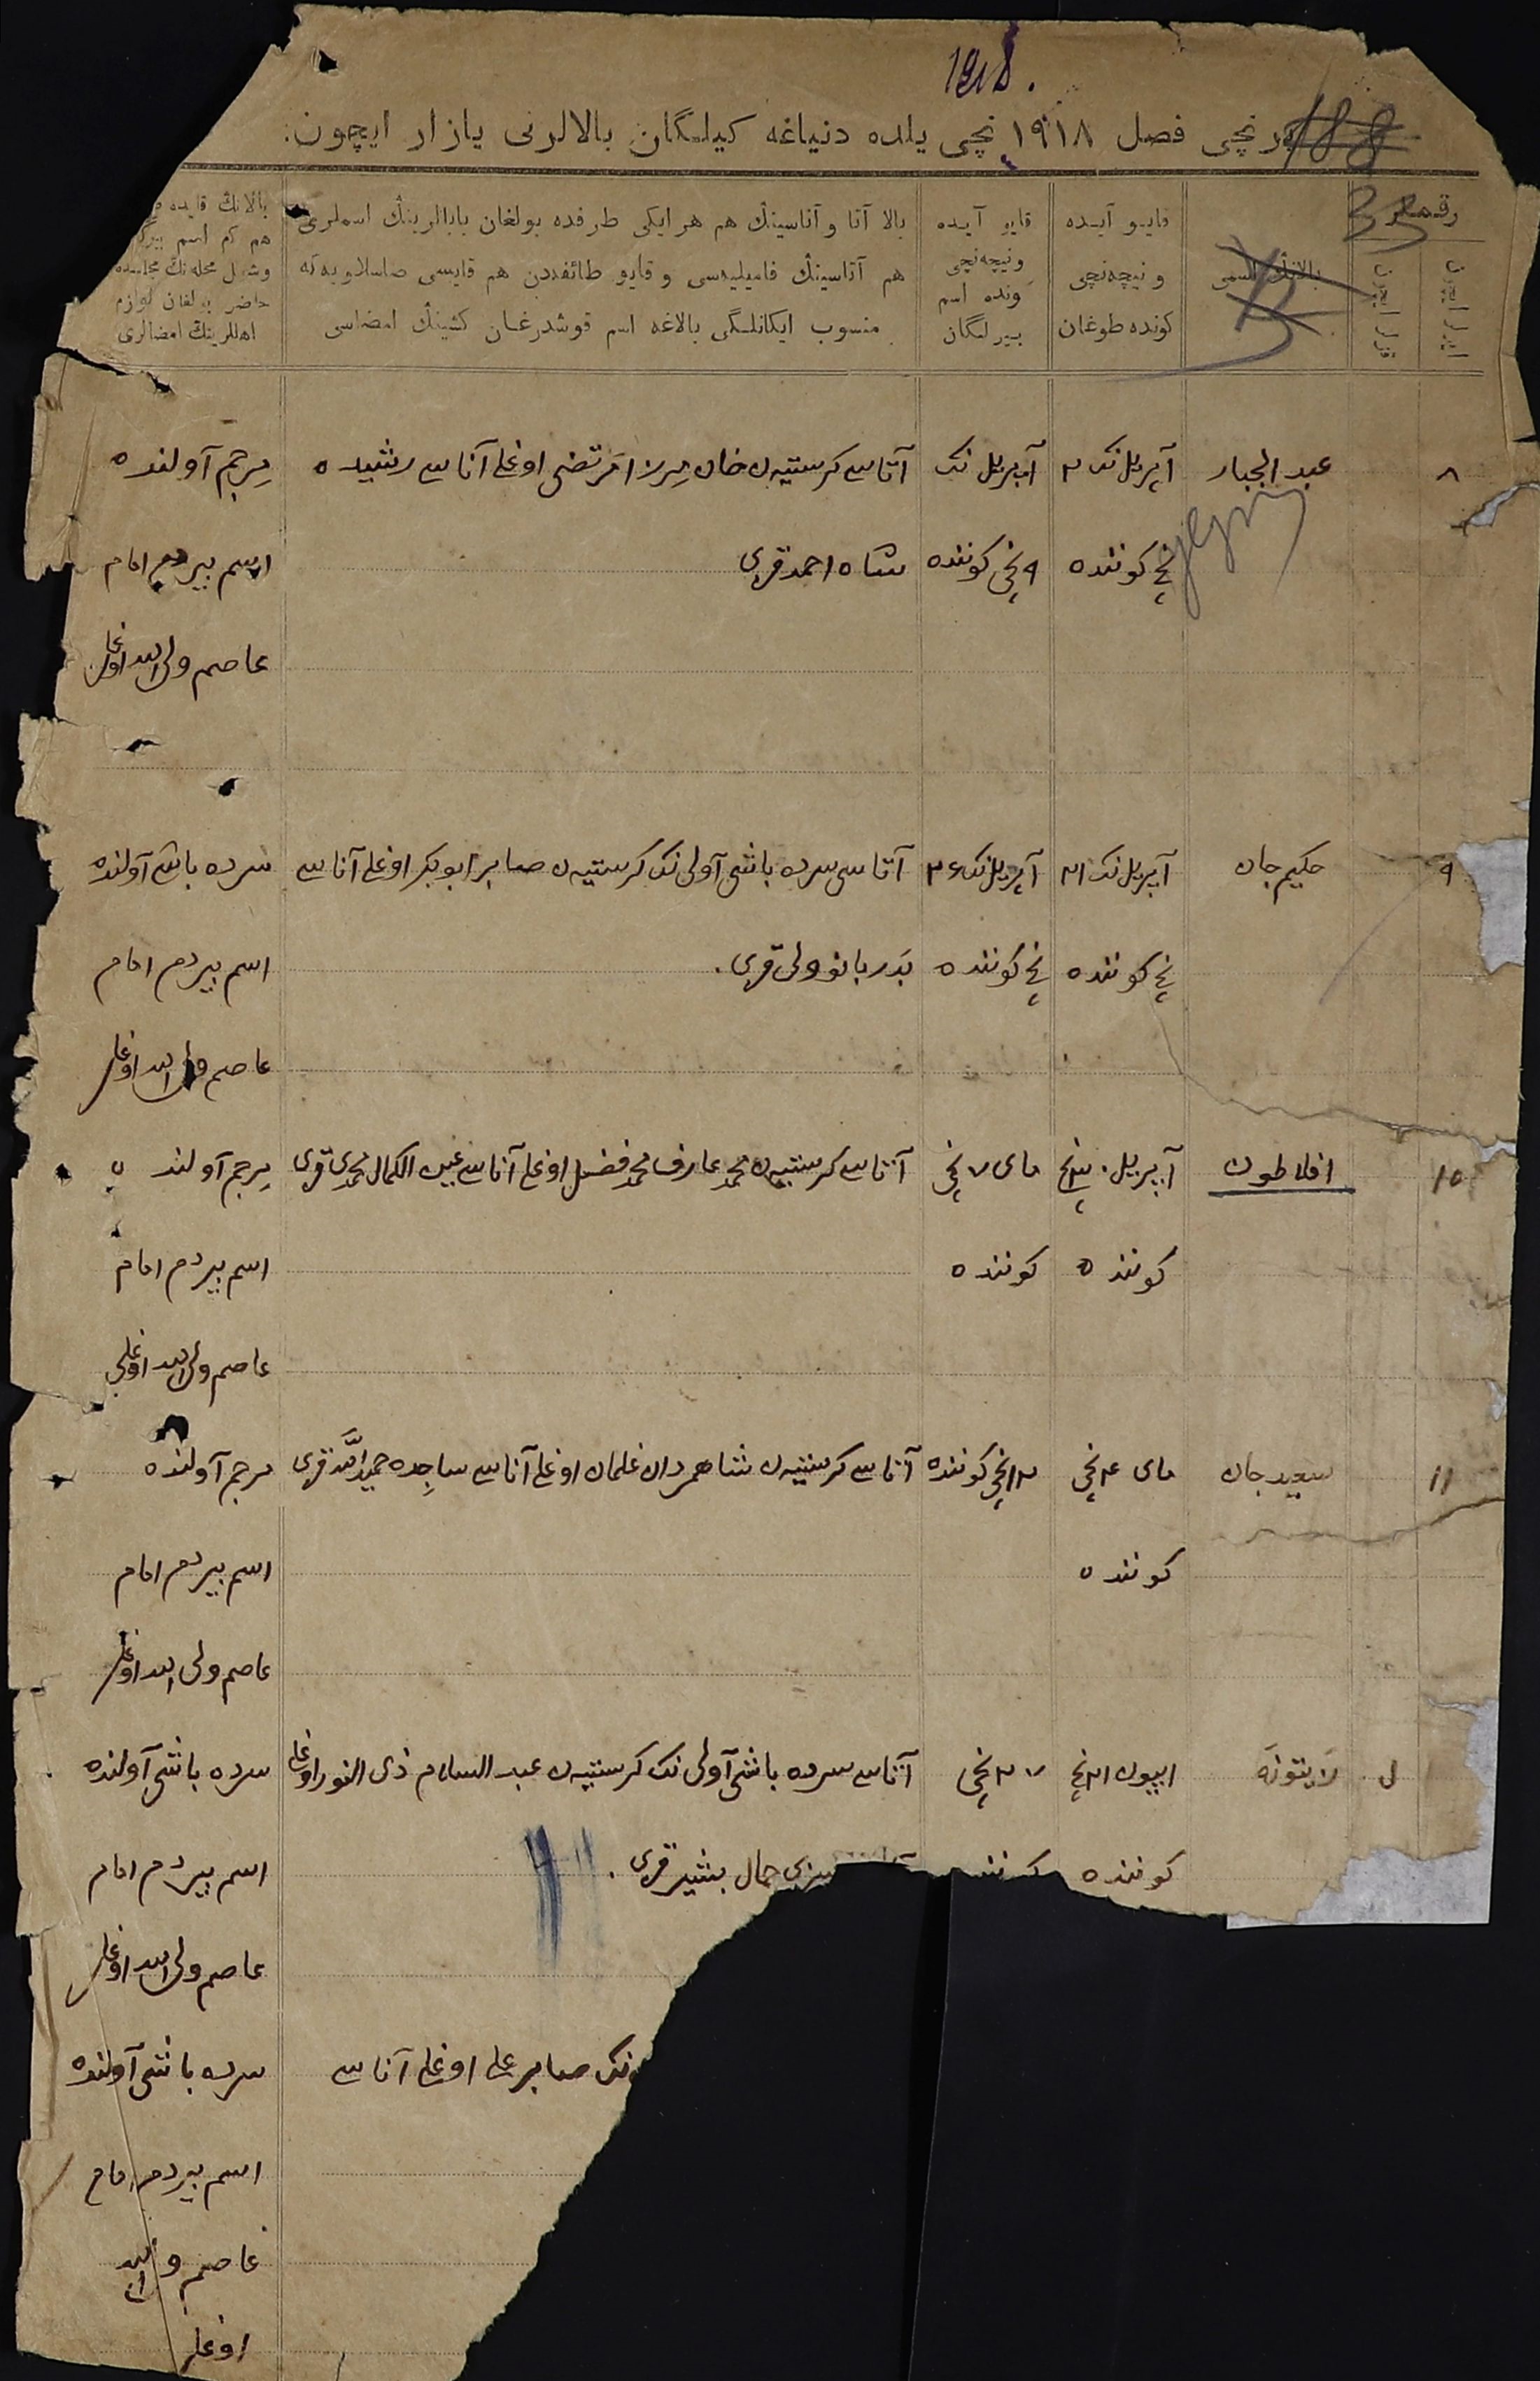 1918.
188
برنچی فصل ١٩١٨ نچی یلده دنیاغه کیلگان بالالرنی یازار ایچون.
رقملر
33
ایرلر ایچون
قزلر ایچون
بالانڭ اسمی
قایو آیده
و نیچه‌نچی
کونده طوغان
قایو آیده
و نیچه‌نچی
کونده اسم
بیرلگان
بالا آتا و آناسینڭ هم هر ایکی طرفده بولغان بابالرینڭ اسملری
هم آتاسینڭ فامیلیه‌سی و قایو طائفه‌دن هم قایسی صاسلاویه‌گه
منسوب ایکانلگی بالاغه اسم قوشدرغان کشینڭ امضاسی
بالانڭ قایده
هم کم اسم
وشول محله‌نڭ مجلسنده
حاضر بولغان لوازم
اهللرینڭ امضالری
٨
عبد الجبار
آپریل نک ٢
نچی کوننده
آپریل نک
٩ نچی کوننده
آتاسی کرستیه‌ن خان میرزا مرتضی اوغلی آناسی رشیده
شاه احمد قزی
میرجم آولنده
اسم بیردم امام
عاصم ولی الله اوغلی
٩
حکیم جان
آپریل نک ٢١
نچی کوننده
آپریل نک ٢۶
نچی کوننده
آتاسی سرده باشی آولی نک کرستیه‌ن صابر ابوبکر اوغلی آناسی
بدر بانو ولی قزی.
سرده باشی آولنده
اسم بیردم امام
عاصم ولی الله اوغلی
١٠
افلاطون
آپریل ٣٠ نچی
کوننده
مای ٧ نچی
کوننده
آتاسی کرستیه‌ن محمد عارف محمد فضل اوغلی آناسی عین الکمال محمدی قزی
میرجم آولنده
اسم بیردم امام
عاصم ولی الله اوغلی
١١
سعید جان
مای ۴ نچی
کوننده
١٢ نچی کوننده
آتاسی کرستیه‌ن شاهمردان غلمان اوغلی آناسی ساجده حمید الله قزی
میرجم آولنده
اسم بیردم امام
عاصم ولی الله اوغلی
ل
لایتونه
اییون ٢١ نچی
کوننده
٢٧ نچی
کوننده
آتاسی سرده باشی آولی نک کرستیه‌ن عبد السلام ذی النور اوغلی
جمال بشیر قزی.
سرده باشی آولنده
اسم بیردم امام
عاصم ولی الله اوغلی
نک صابر علی اوغلی آناسی
سرده باشی آولنده
اسم بیردم امام
عاصم ولی الله
اوغلی